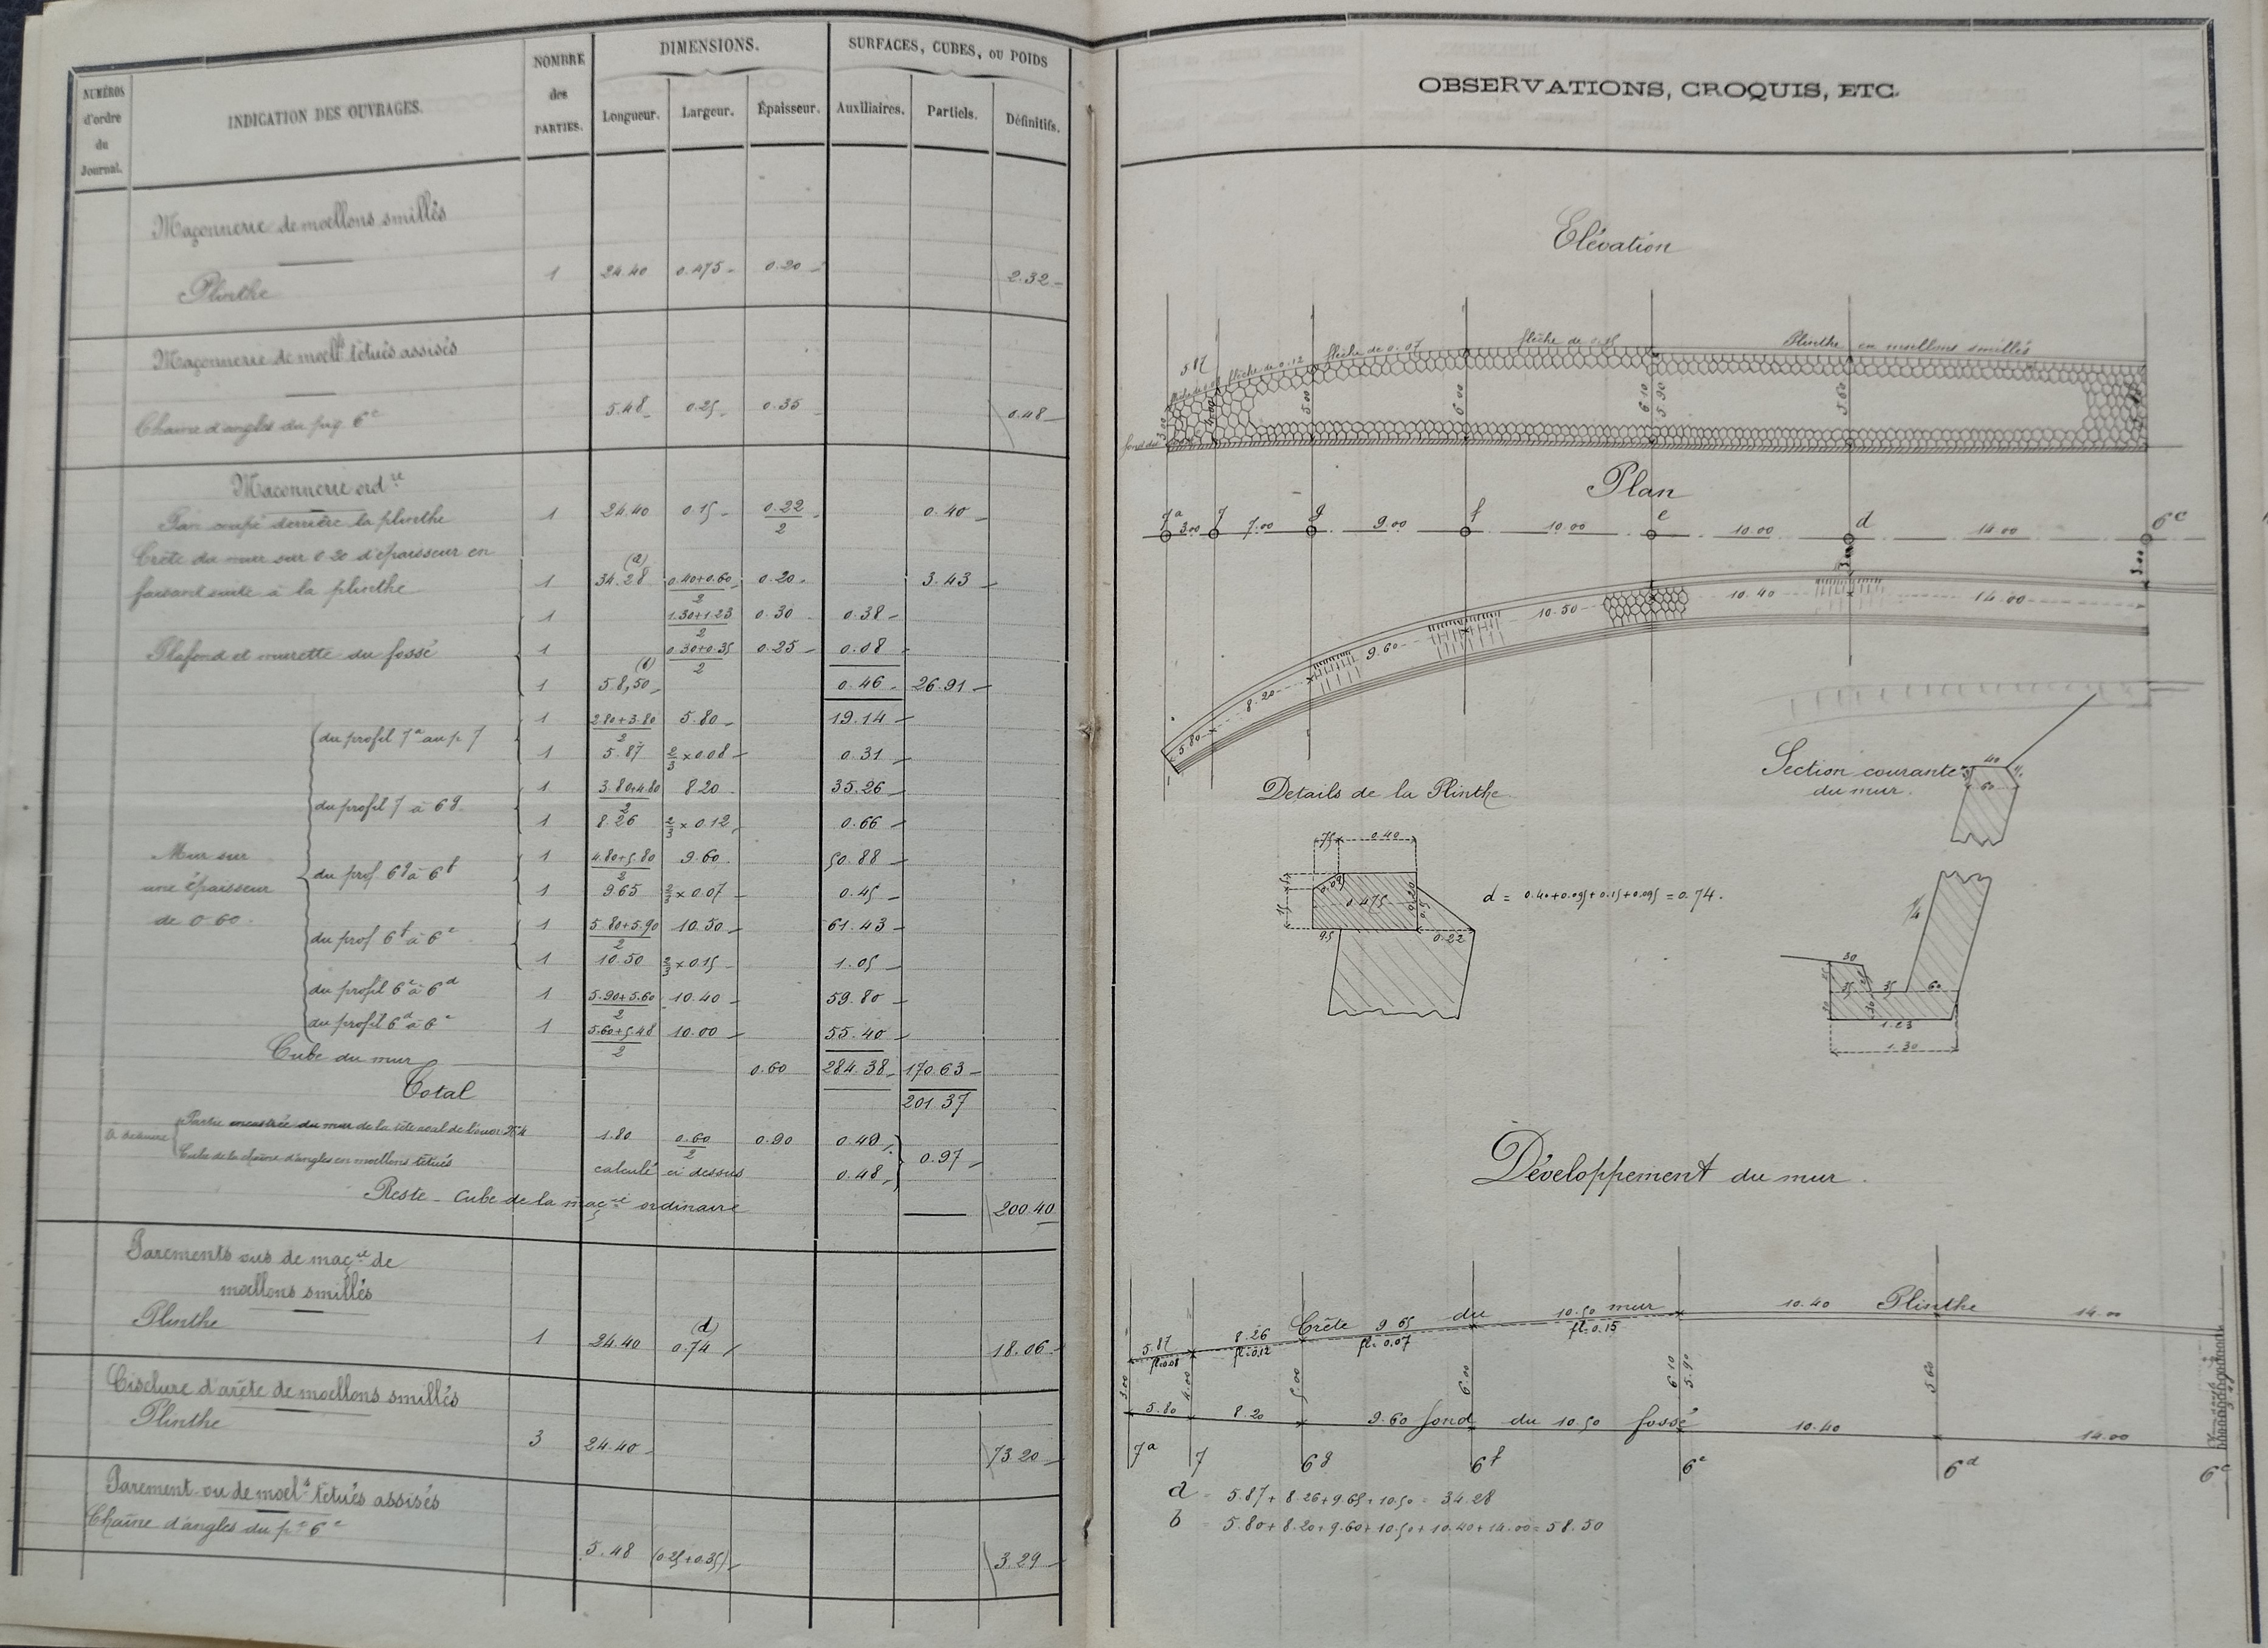 NUMÉROS d'ordre du Journal.
INDICATION DES OUVRAGES.
NOMBRE des PARTIES.
DIMENSIONS.
Longueur. Largeur. Épaisseur.
SURFACES, CUBES, OU POIDS
Auxiliaires. Partiels. Définitifs.
Maçonnerie de moellons smillés
Plinthe 1 24.40 0.475 0.20 2.32
Maçonnerie de moell^s têtués assisés
Chaîne d'angles du 6^c 5.48 0.25 0.35 0.48
Maçonnerie ord^re
Pan coupé derrière la plinthe 1 24.40 0.15 0.22/2 0.40
Crête du mur sur 0.20 d'épaisseur en
(a)
faisant suite à la plinthe 1 34.28 0.40+0.60/2 0.20 3.43
1 1.30+1.23/2 0.30 0.38
Plafond et murette du fossé 1 0.30+0.35/2 0.25 0.08
(b)
1 58,50 0.46 26.91
du profil 7^a au p 7 1 2.80+3.80/2 5.80 19.14
1 5.87 2/3 x 0.08 0.31
du profil 7 à 6^g 1 3.80+4.80/2 8.20 35.26
1 8.26 2/3 x 0.12 0.66
Mur sur
une épaisseur
de 0.60
du prof 6^g à 6^f 1 4.80+5.80/2 9.60 50.88
1 9.65 2/3 x 0.07 0.45
du prof 6^f à 6^e 1 5.80+5.90/2 10.50 61.43
1 10.50 2/3 x 0.15 1.05
du profil 6^e à 6^d 1 5.90+5.60/2 10.40 59.80
du profil 6^d à 6^c 1 5.60+5.48/2 10.00 55.40
Cube du mur 0.60 284.38 170.63
Total 201.37
Partie encastrée du mur de la tête aval de 1.80 0.60/2 0.90 0.49
Cube de la chaîne d'angles en moellons têtués calculé ci dessus 0.48 0.97
Reste - Cube de la maç^rie ordinaire 200.40
Parements vus de maç^rie de
moellons smillés
(d)
Plinthe 1 24.40 0.74 18.06
Ciselure d'arête de moellons smillés
Plinthe 3 24.40 73.20
Parement vu de moel^s têtués assisés
Chaîne d'angles du p^l 6^c 5.48 (0.25+0.35) 3.29
OBSERVATIONS, CROQUIS, ETC.
Elévation
5.87 flèche de 0.12 flèche de 0.07 flèche de 0.15 Plinthe en moellons smillés
4.00 5.00 6.00 6.10 5.90 5.60
Plan
7^a 7 g f e d 6^c
3.00 7.00 9.00 10.00 10.00 14.00
3.00
5.80 8.20 9.60 10.50 10.40 14.00
Details de la Plinthe
Section courante
du mur.
40
60
75 0.40
0.09
0.475
0.20
95 0.22
d = 0.40+0.095+0.15+0.095 = 0.74.
1/4
30
35 35 60
30
1.23
1.30
Développement du mur.
5.87 8.26 Crête 9.65 du 10.50 mur 10.40 Plinthe 14.00
fl=0.08 fl=0.12 fl. 0.07 fl. 0.15
3.00 4.00 5.00 6.00 6.10 5.90 5.60
5.80 8.20 9.60 fond du 10.50 fossé 10.40 14.00
7^a 7 6^g 6^f 6^e 6^d 6^c
a = 5.87 + 8.26 + 9.65 + 10.50 = 34.28
b = 5.80 + 8.20 + 9.60 + 10.50 + 10.40 + 14.00 = 58.50